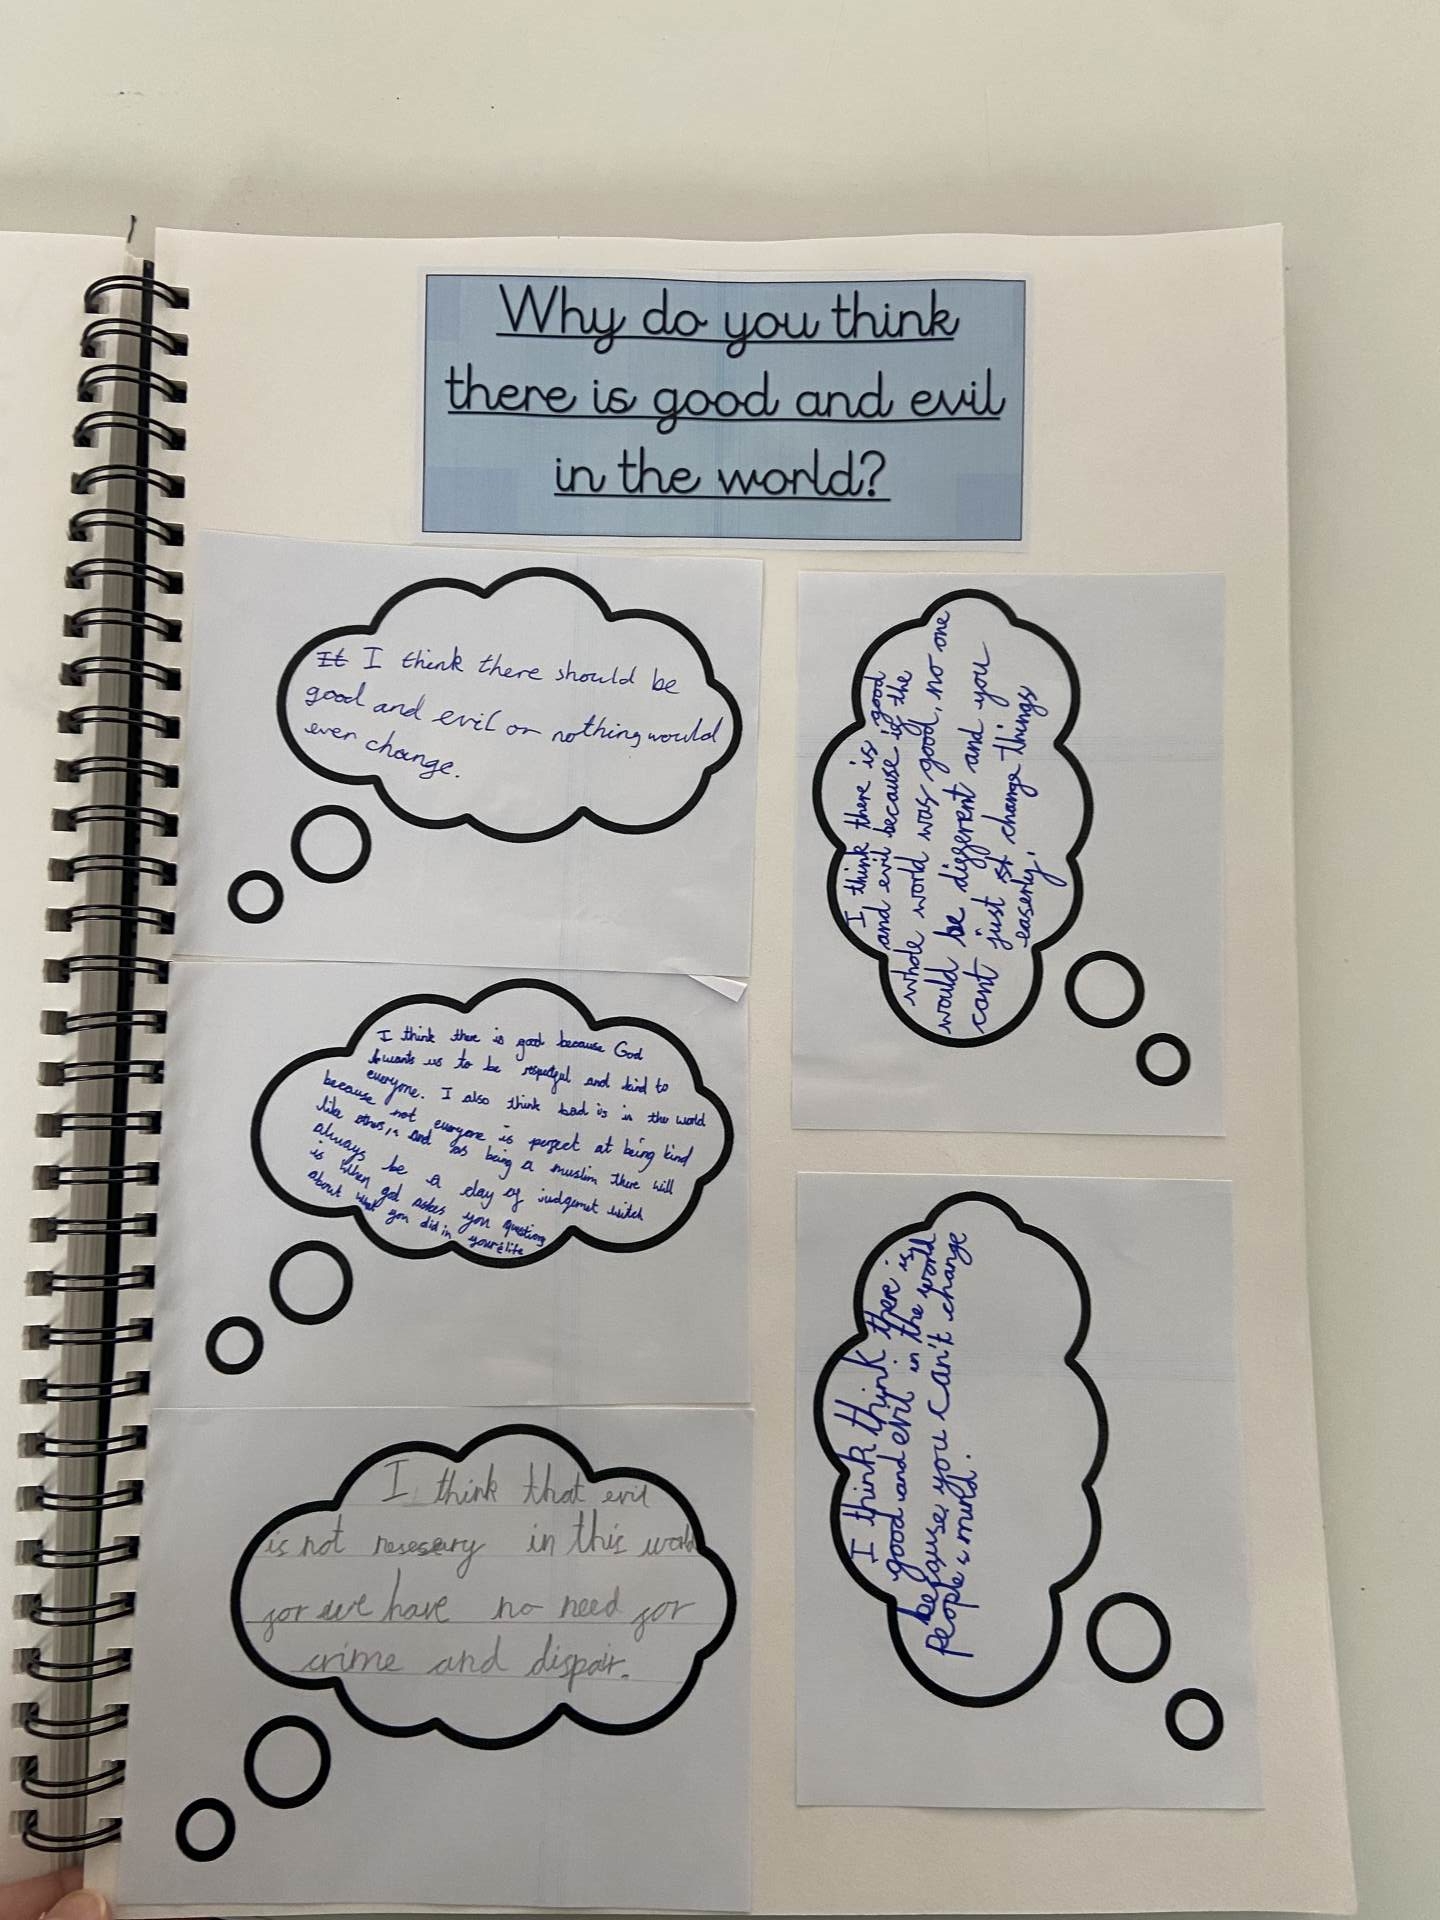 Why do you think
there is good and evil
in the world?
It I think there should be
good and evil or nothing would
ever change.
I think there is good because God
wants us to be respectful and kind to
everyone. I also think bad is in the world
because not everyone is perfect at being kind
like others, and as being a muslim there will
always be a day of judgemet witch
is when god askes you questions
about what you did in your life
I think that evil
is not nesesery in this world
for we have no need for
crime and dispair.
I think there is good
and evil because if the
whole world was good, no one
would be different and you
cant just change things
easerly.
I think think there is
good and evil in the world
because you can't change
people's mind.